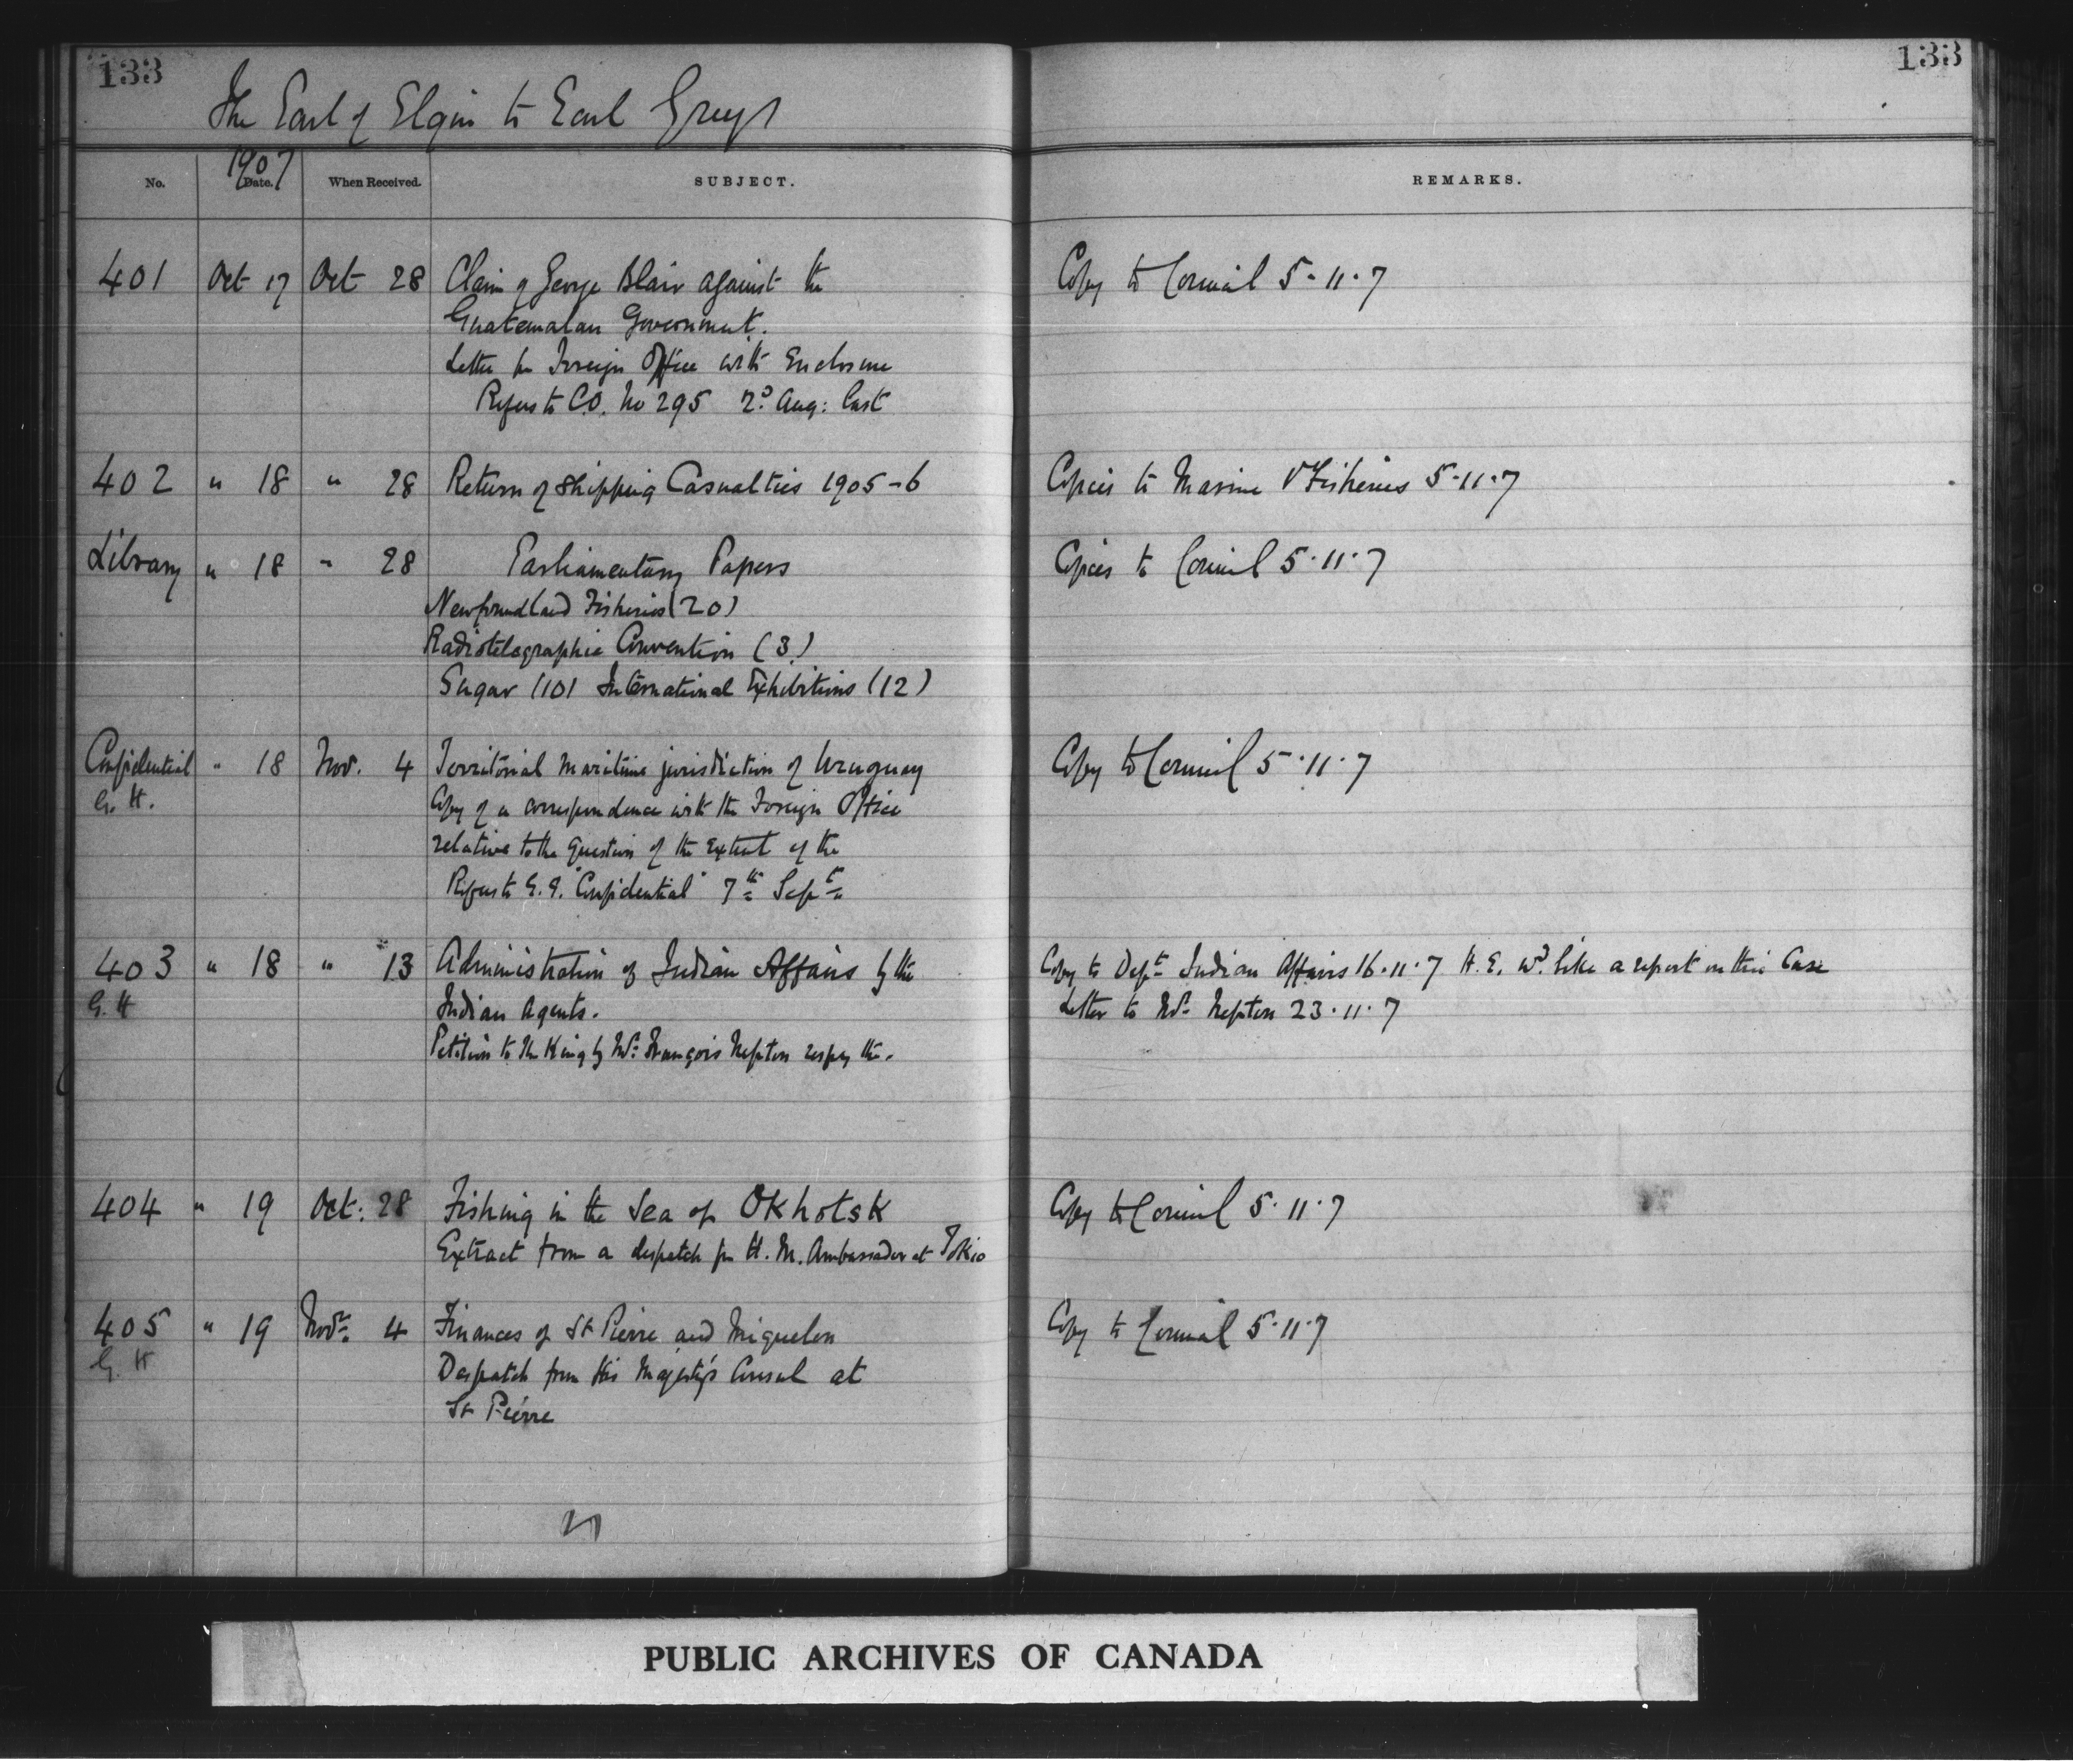 133
133
The Earl of Elgin to Earl Grey
1907
No. Date. When Received. SUBJECT. REMARKS.
401 Oct 17 Oct 28 Claim of George Blair against the Copy to Council 5.11.7
Guatemalan Government.
Letter fm Foreign Office with Enclosure
Refers to C.O. No 295 2d Aug: last
402 " 18 " 28 Return of Shipping Casualties 1905-6 Copies to Marine & Fisheries 5.11.7
Library " 18 " 28 Parliamentary Papers Copies to Council 5.11.7
Newfoundland Fisheries (20)
Radiotelegraphic Convention (3)
Sugar (10) International Exhibitions (12)
Confidential " 18 Nov. 4 Territorial Maritime jurisdiction of Uruguay Copy to Council 5.11.7
G. H. Copy of a correspondence with the Foreign Office
relative to the Question of the Extent of the
Refers to G.G. "Confidential" 7th Sept.
403 " 18 " 13 Administration of Indian Affairs by the Copy to Dept Indian Affairs 16.11.7 H.E. wd like a report on this Case
G. H Indian Agents. Letter to Mr Nepton 23.11.7
Petition to the King by Mr. François Nepton respg the.
404 " 19 Oct: 28 Fishing in the Sea of Okhotsk Copy to Council 5.11.7
Extract from a despatch fm H.M. Ambassador at Tokio
405 " 19 Novr. 4 Finances of St Pierre and Miquelon Copy to Council 5.11.7
G. H Despatch from His Majesty's Consul at
St Pierre
PUBLIC ARCHIVES OF CANADA